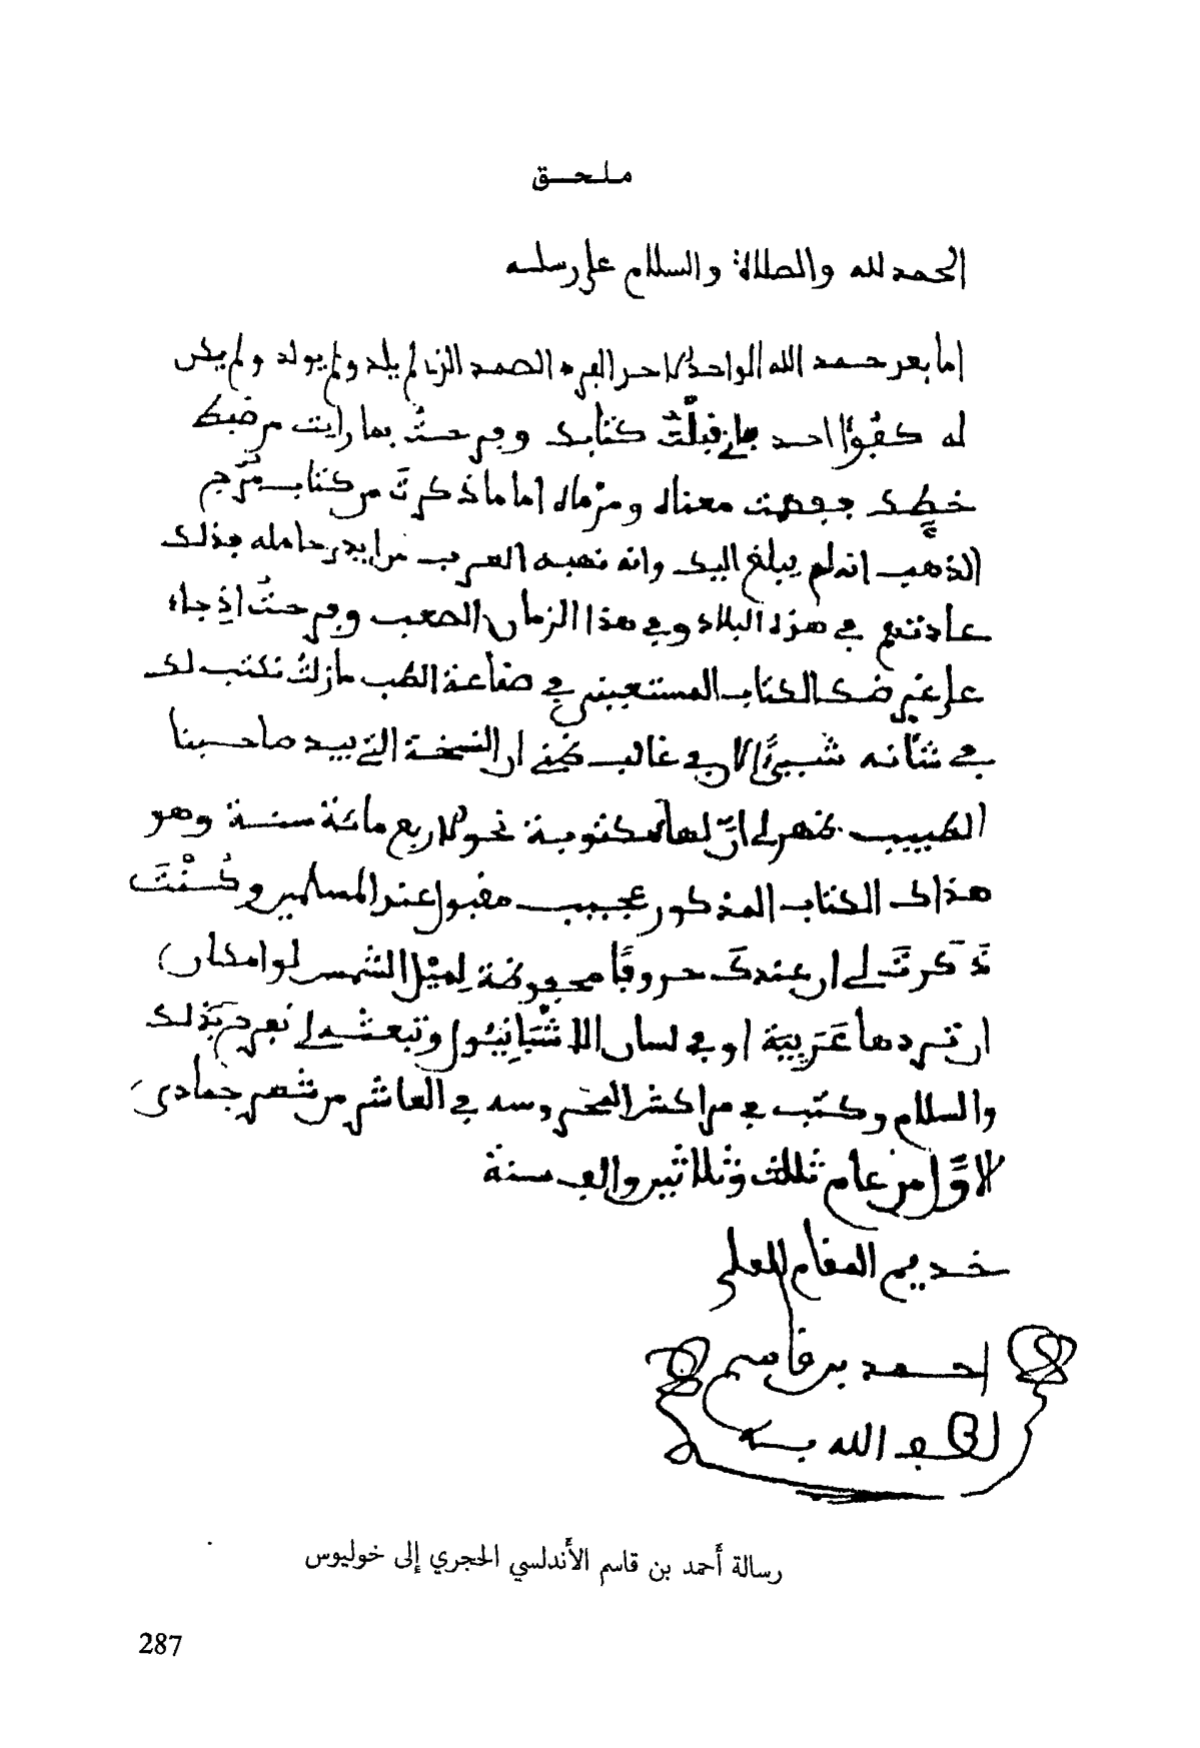 ملحق
الحمد لله والصلاة والسلام على رسله
اما بعد حمد الله الواحد الاحد الفرد الصمد الذي لم يلد ولم يولد ولم يكن
له كفؤا احد فاني قبلت كتابك وفرحت بما رايت من ضبط
خطك ففهمت معناه ومرماه اما ما ذكرت من كتاب مرج
الذهب انه لم يبلغ اليك وانه نهبه العرب من ايدي حامله فذلك
عادتهم في هذه البلاد وفي هذا الزمان الصعب وفرحت اذ جاء
على غرضك الكتاب المستعيني في صناعة الطب مازلت نكتب لك
في شانه شيئا الا وفي غالب ظني ان النسخة التي بيد صاحبنا
الطبيب ظهر لي ان لها مكتوبة نحو الاربع مائة سنة وهو
هذاك الكتاب المذكور عجيب مقبول عند المسلمين وكُنْتَ
ذَكَرتَ لي ان عندكَ حروفًا محفوظة لِميْل الشمس لو امكن
ان تردها عَرَبِيَة او في لسان الاشْبَانِيُول وتبعثه لي نفرح بذلك
والسلام وكتب في مراكش المحروسه في العاشر من شهر جمادى
الاوَّل من عام ثلاث وثلاثين والف سنة
خديم المقام العلي
احمد بن قاسم
لطف الله به
رسالة أحمد بن قاسم الأندلسي الحجري إلى خوليوس
287